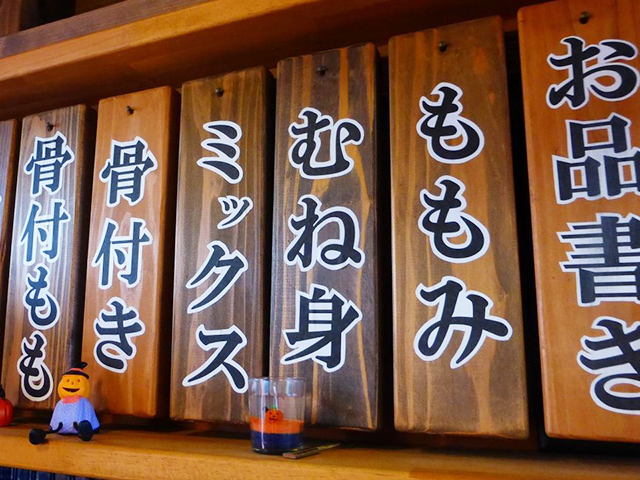 お品書き
ももみ
むね身
ミックス
骨付き
骨付もも